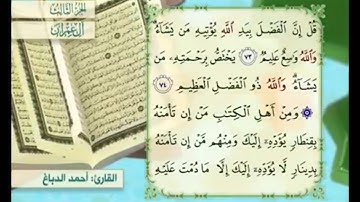 الجزء الثالث
آل عمران
قُلْ إِنَّ ٱلْفَضْلَ بِيَدِ ٱللَّهِ يُؤْتِيهِ مَن يَشَآءُ
وَٱللَّهُ وَٰسِعٌ عَلِيمٌ ٧٣ يَخْتَصُّ بِرَحْمَتِهِۦ مَن
يَشَآءُ وَٱللَّهُ ذُو ٱلْفَضْلِ ٱلْعَظِيمِ ٧٤
وَمِنْ أَهْلِ ٱلْكِتَٰبِ مَنْ إِن تَأْمَنْهُ
بِقِنطَارٍ يُؤَدِّهِۦٓ إِلَيْكَ وَمِنْهُم مَّنْ إِن تَأْمَنْهُ
بِدِينَارٍ لَّا يُؤَدِّهِۦٓ إِلَيْكَ إِلَّا مَا دُمْتَ عَلَيْهِ
القارئ: أحمد الدباغ